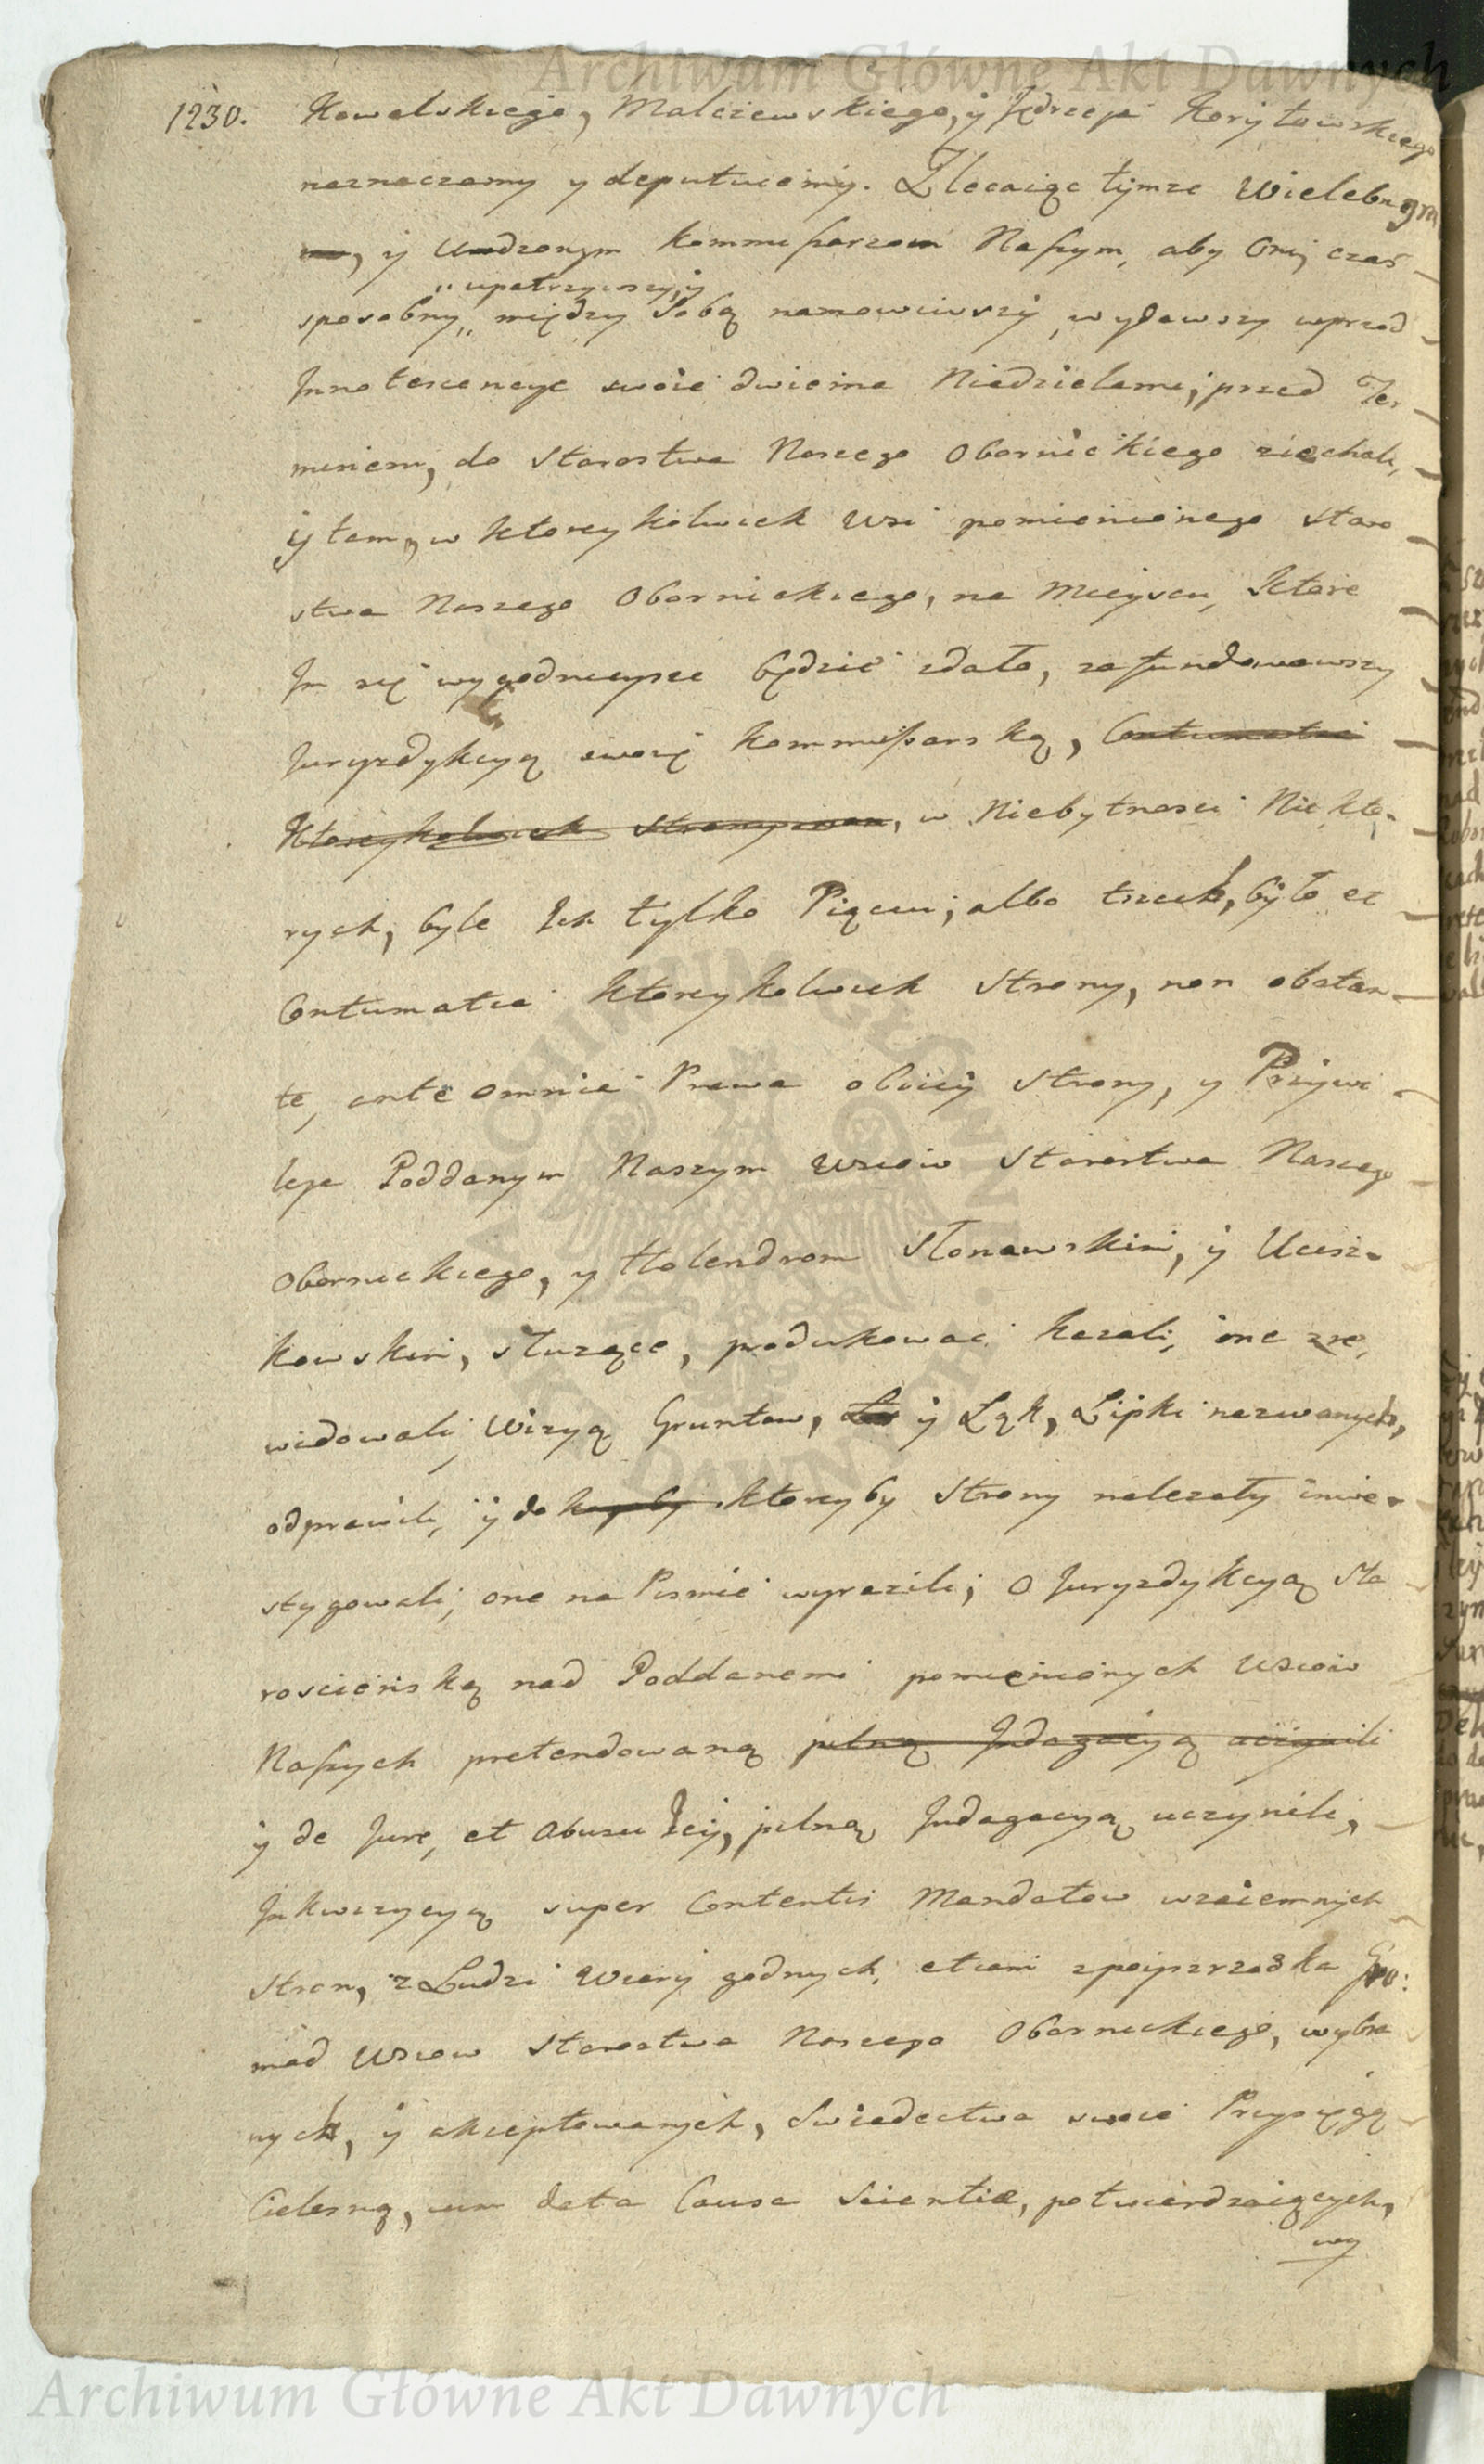 Archiwum Główne Akt Dawnych
1230. Kowalskiego, Malczewskiego, y Jędrzeja Korytowskiego
naznaczamy y deputuiemy. Zlecaiąc tymże Wielebnym
y Urodzonym Kommissarzom Naszym, aby Oni czas
upatrzywszy, y
sposobny, między Sobą namowiwszy, wydawszy wprzod
Innotescencye swoie dwiema Niedzielami, przed Ter
minem, do Starostwa Naszego Obornickiego ziechali,
y tam, w ktoreykolwiek Wsi pomienionego Staro
stwa Naszego Obornickiego, na Mieyscu, ktore
Im się wygodnieysze będzie zdało, zafundowawszy
Juryzdykcyą swoię Kommissarską, Contumatia
ktoreykolwiek Strony non, w Niebytnosci Niekto-
rych, byle Ich tylko Pięciu, albo trzech, było et
Contumatia ktoreykolwiek Strony, non obstan
te, ante omnia Prawa oboiey Strony, y Przywi
leie Poddanym Naszym Wsiow Starostwa Naszego
Obornickiego, y Holendrom Słonawskim, y Ucisz-
kowskim, służące, produkowac kazali, one zre,
widowali, Wizyą Gruntow, y Łąk, Lipki nazwanych,
odprawili, y do ktoreyby Strony nalezały inwe-
stygowali, one na Pismie wyrazili, o Juryzdykcyą Sta
roscińską nad Poddanemi pomienionych Wsiow
Naszych pretendowaną pilną Indagacyą uczynili
y de Jure, et Abusu Iey, pilną Indagacyą uczynili,
Inkwizycyą super Contentis Mandatow wzaiemnych
Stron, z Ludzi Wiary godnych, etiam zpoiprzodka Gro:
mad Wsiow Starostwa Naszego Obornickiego, wybra
nych, y akceptowanych, Swiadectwa swoie Przysięgą
Cielesną, cum data Causa Scientiæ, potwierdzaiących,
wy
Archiwum Główne Akt Dawnych